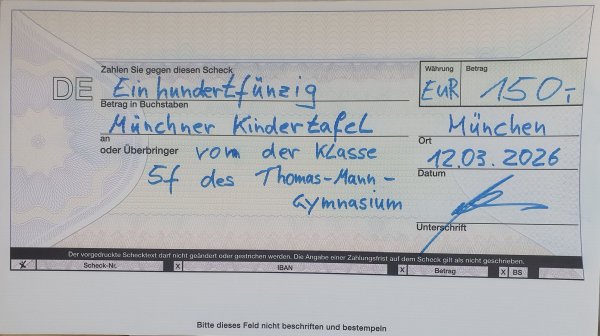 Zahlen Sie gegen diesen Scheck
Währung Betrag
DE Einhundertfünzig EUR 150,-
Betrag in Buchstaben
Münchner Kindertafel München
an Ort
oder Überbringer vom der Klasse 12.03.2026
5f des Thomas-Mann- Datum
Gymnasium
Unterschrift
Der vorgedruckte Schecktext darf nicht geändert oder gestrichen werden. Die Angabe einer Zahlungsfrist auf dem Scheck gilt als nicht geschrieben.
x Scheck-Nr. x IBAN x Betrag x BS
Bitte dieses Feld nicht beschriften und bestempeln